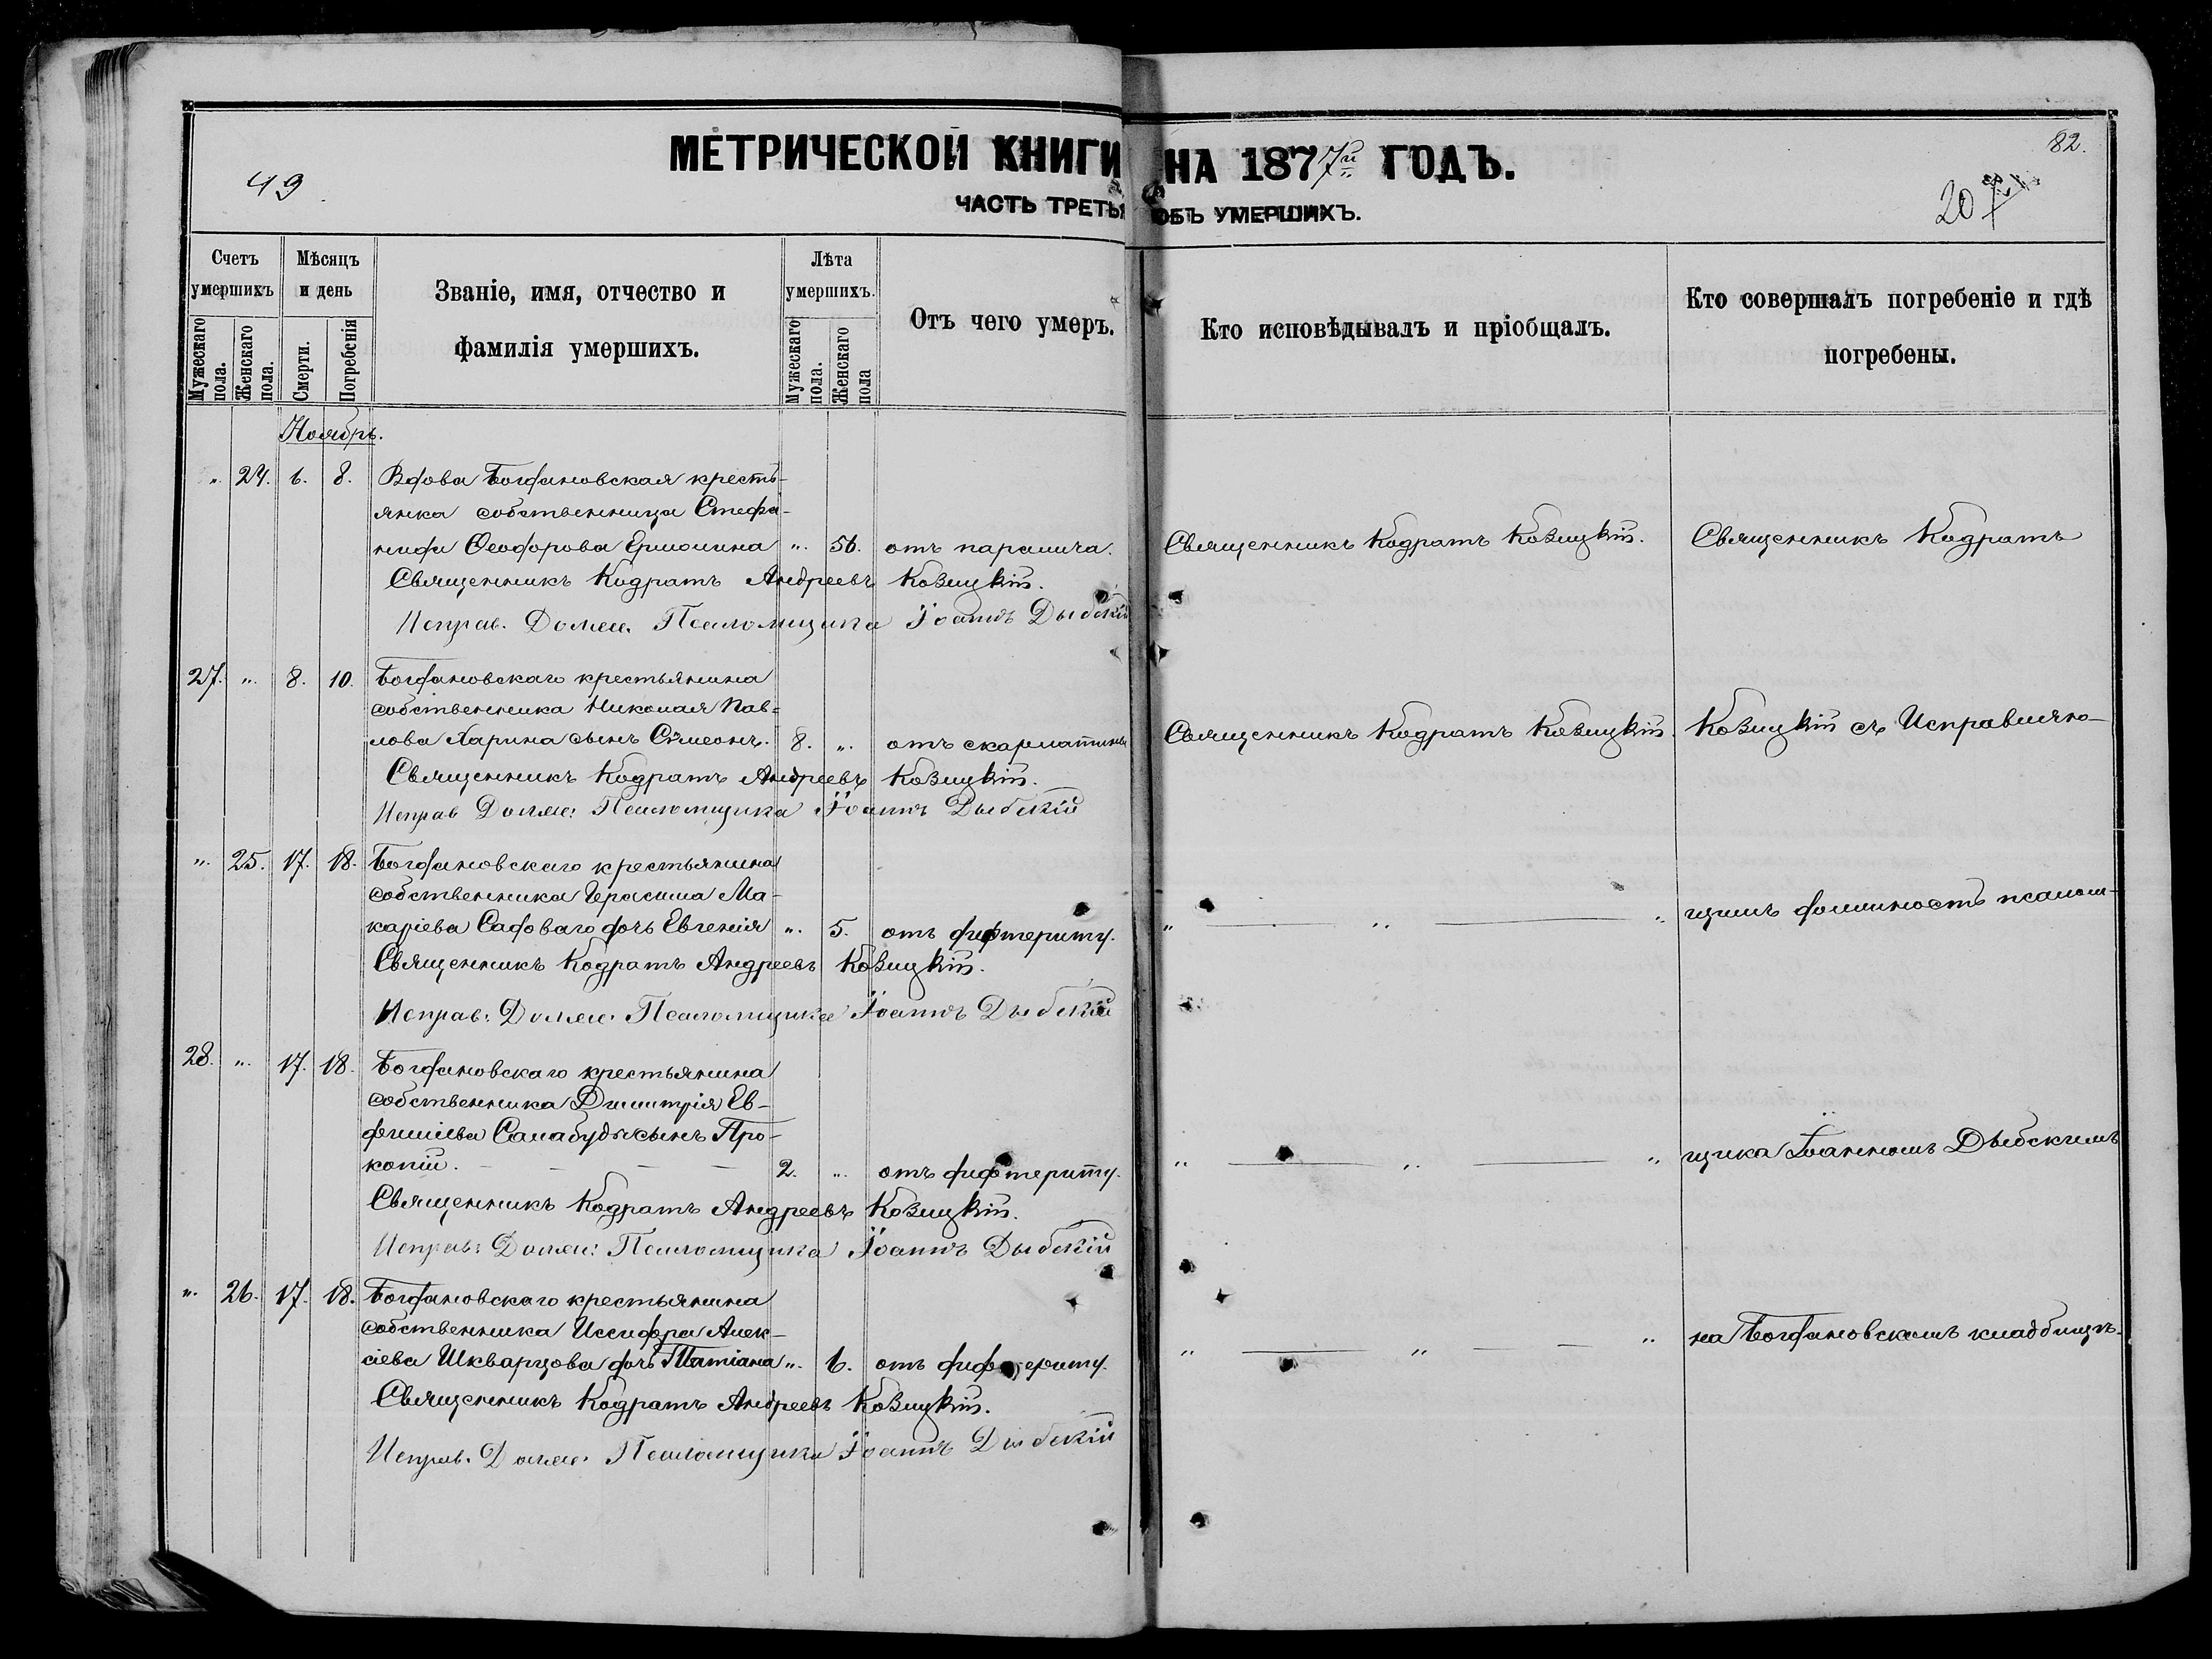 МЕТРИЧЕСКОЙ КНИГИ НА 1877й ГОДЪ.
ЧАСТЬ ТРЕТЬЯ ОБЪ УМЕРШИХЪ.
49
82.
Счетъ умершихъ
Мужескаго пола.
Женскаго пола.
Мѣсяцъ и день
Смерти.
Погребенія
Званіе, имя, отчество и
фамилія умершихъ.
Лѣта умершихъ.
Мужескаго пола.
Женскаго пола
Отъ чего умеръ.
Кто исповѣдывалъ и пріобщалъ.
Кто совершалъ погребеніе и гдѣ
погребены.
Ноябрь.
" 24. 6. 8. Вдова Богдановская кресть-
янка собственница Стефа-
нида Ѳеодорова " 56. отъ паралича. Священникъ Кодратъ Козицкій. Священникъ Кодратъ
Священникъ Кодратъ Андреевъ Козицкій.
Исправ. Долж. Псаломщика Іоаннъ Дыбскій
27. " 8. 10. Богдановскаго крестьянина
собственника Николая Пав=
лова Ларина сынъ Сѵмеонъ. 8. " отъ скарлатины Священникъ Кодратъ Козицкій. Козицкій съ Исправляю-
Священникъ Кодратъ Андреевъ Козицкій.
Исправ Долж: Псаломщика Іоаннъ Дыбскій
" 25. 17. 18. Богдановскаго крестьянина
собственника Герасима Ма-
каріева Садоваго дочь Евгенія " 5. отъ дифтериту. " " " щимъ должность псалом-
Священникъ Кодратъ Андреевъ Козицкій.
Исправ: Долж: Псаломщика Іоаннъ Дыбскій
28. " 17. 18. Богдановскаго крестьянина
собственника Димитрія Ев-
фиміева сынъ Про-
копій. 2. " отъ дифтериту. " " " щика Іоанномъ Дыбскимъ
Священникъ Кодратъ Андреевъ Козицкій.
Исправ: Долж: Псаломщика Іоаннъ Дыбскій
" 26. 17. 18. Богдановскаго крестьянина
собственника Алек-
сіева Шкварцова дочь Татіана " 6. отъ дифтериту. " " " на Богдановскомъ кладбищѣ.
Священникъ Кодратъ Андреевъ Козицкій.
Исправ. Долж: Псаломщика Іоаннъ Дыбскій